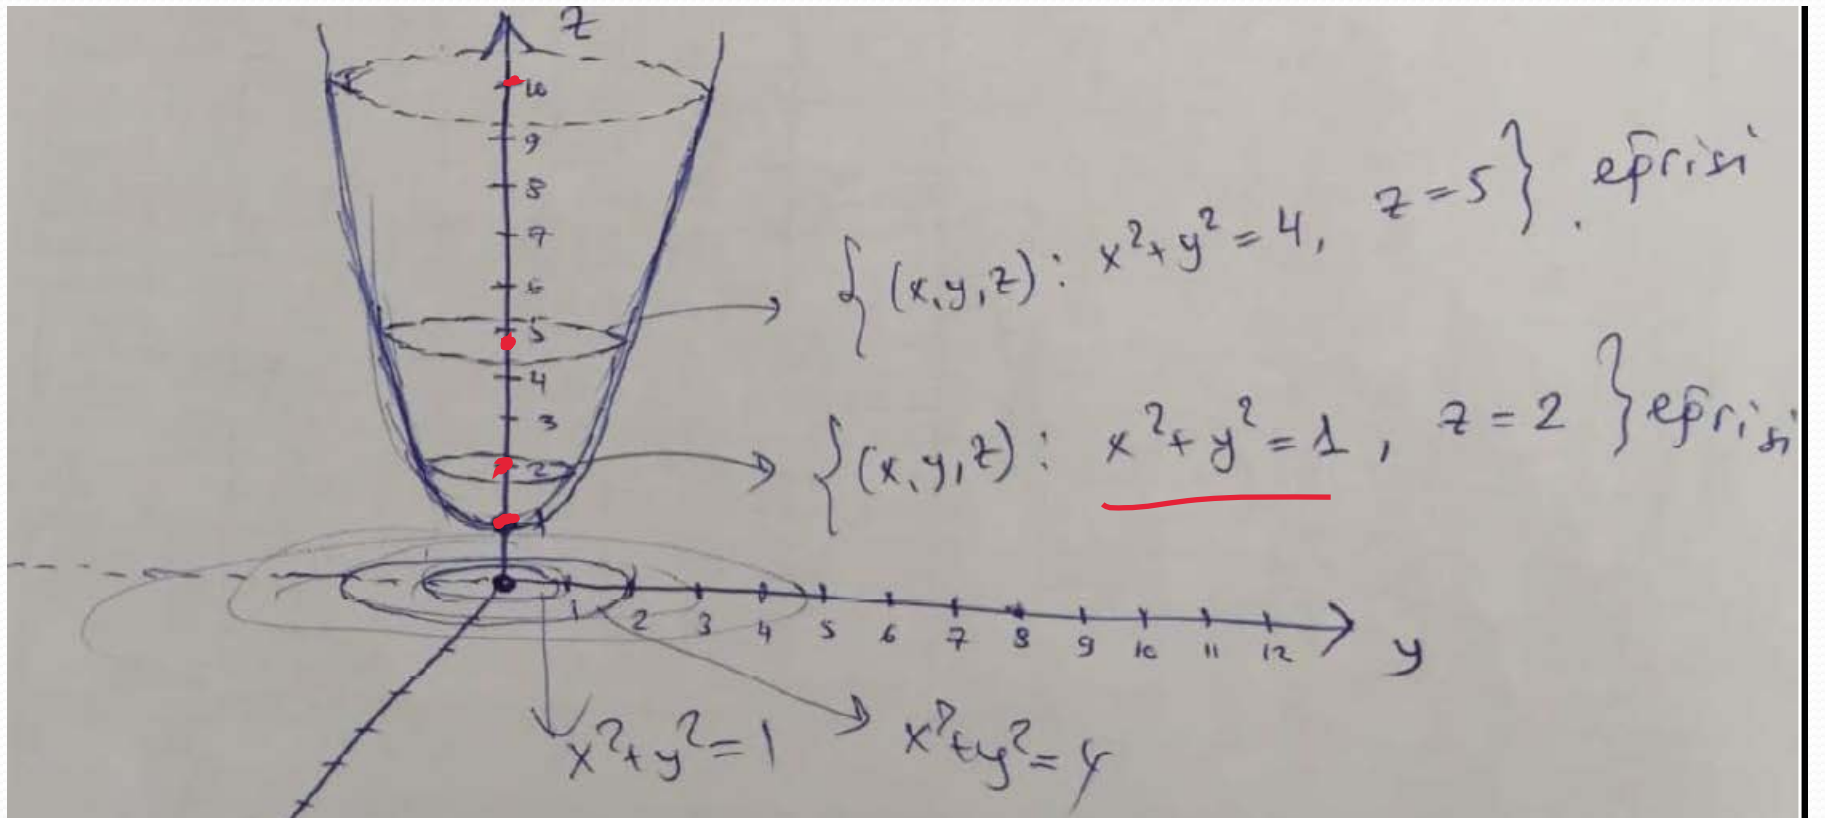 z
10
9
8
7
6
5
4
3
2
1
{(x,y,z): x²+y²=4, z=5} eğrisi
{(x,y,z): x²+y²=1, z=2} eğrisi
1 2 3 4 5 6 7 8 9 10 11 12
y
x²+y²=1
x²+y²=4